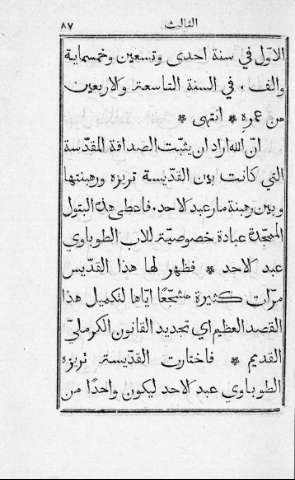 الثالث ٨٧
الاول في سنة احدى وتسعين وخمسماية
والف . في السنة التاسعة والاربعين
من عمره * انتهى *
انّ الله اراد ان يثبت الصداقة المقدّسة
التي كانت بين القدّيسة تريزه ورهبنتها
وبين رهبنة مار عبد لاحد . فاعطى هذه البتول
المجّدة عبادة خصوصيّة للاب الطوباوي
عبد لاحد * فظهر لها هذا القدّيس
مرّات كثيرة مشجّعًا ايّاها لتكميل هذا
القصد العظيم اي تجديد القانون الكرمليّ
القديم * فاختارت القدّيسة تريزه
الطوباوي عبد لاحد ليكون واحدًا من